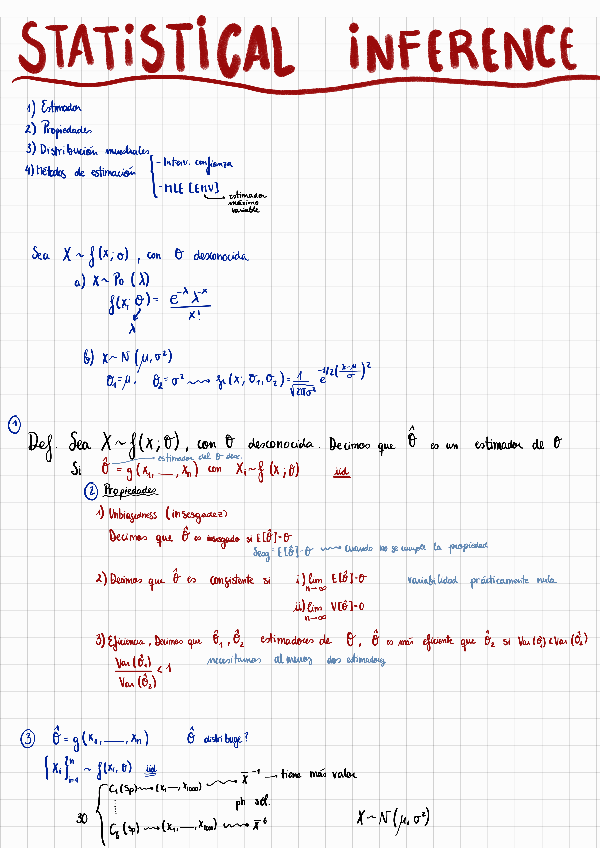 STATISTICAL INFERENCE
1) Estimador
2) Propiedades
3) Distribución muestrales
4) Métodos de estimación
- Interv. confianza
- MLE [EMV]
estimador
máximo
variable
Sea X ~ f(x; θ), con θ desconocida
a) X ~ Po (λ)
f(x; θ) = e^-λ λ^-x / x!
λ
b) X ~ N(μ, σ²)
θ₁ = μ, θ₂ = σ² ⟿ f(x; θ₁, θ₂) = 1/√2πσ² e^-1/2((x-μ)/σ)²
① Def. Sea X ~ f(x; θ), con θ desconocida. Decimos que θ̂ es un estimador de θ
estimador del θ desc.
Si θ̂ = g(x₁, __, xₙ) con Xᵢ ~ f(x; θ) iid
② Propiedades
1) Unbiasedness (insesgadez)
Decimos que θ̂ es insesgado si E[θ̂] = θ
Sesg: E[θ̂] - θ ⟿ cuando no se cumple la propiedad
2) Decimos que θ̂ es consistente si i) lim n→∞ E[θ̂] = θ variabilidad prácticamente nula
ii) lim n→∞ V[θ̂] = 0
3) Eficiencia. Decimos que θ̂₁, θ̂₂ estimadores de θ, θ̂ es más eficiente que θ̂₂ si Var(θ̂₁) < Var(θ̂₂)
Var(θ̂₁) / Var(θ̂₂) < 1 necesitamos al menos dos estimadores
③ θ̂ = g(x₁, __, xₙ) θ̂ distribuye?
{Xᵢ}ⁿᵢ₌₁ ~ f(x, θ) iid
C₁ (Sp) ⟿ (x₁ __, x₁₀₀₀) ⟿ X̄⁻¹ → tiene más valor
30
C₆ (Sp) ⟿ (x₁, __, x₁₀₀₀) ⟿ X̄⁶
X ~ N(μ, σ²)